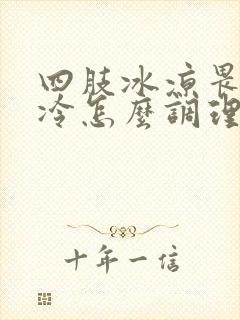 四肢冰凉畏
冷怎麼調理
十年一信